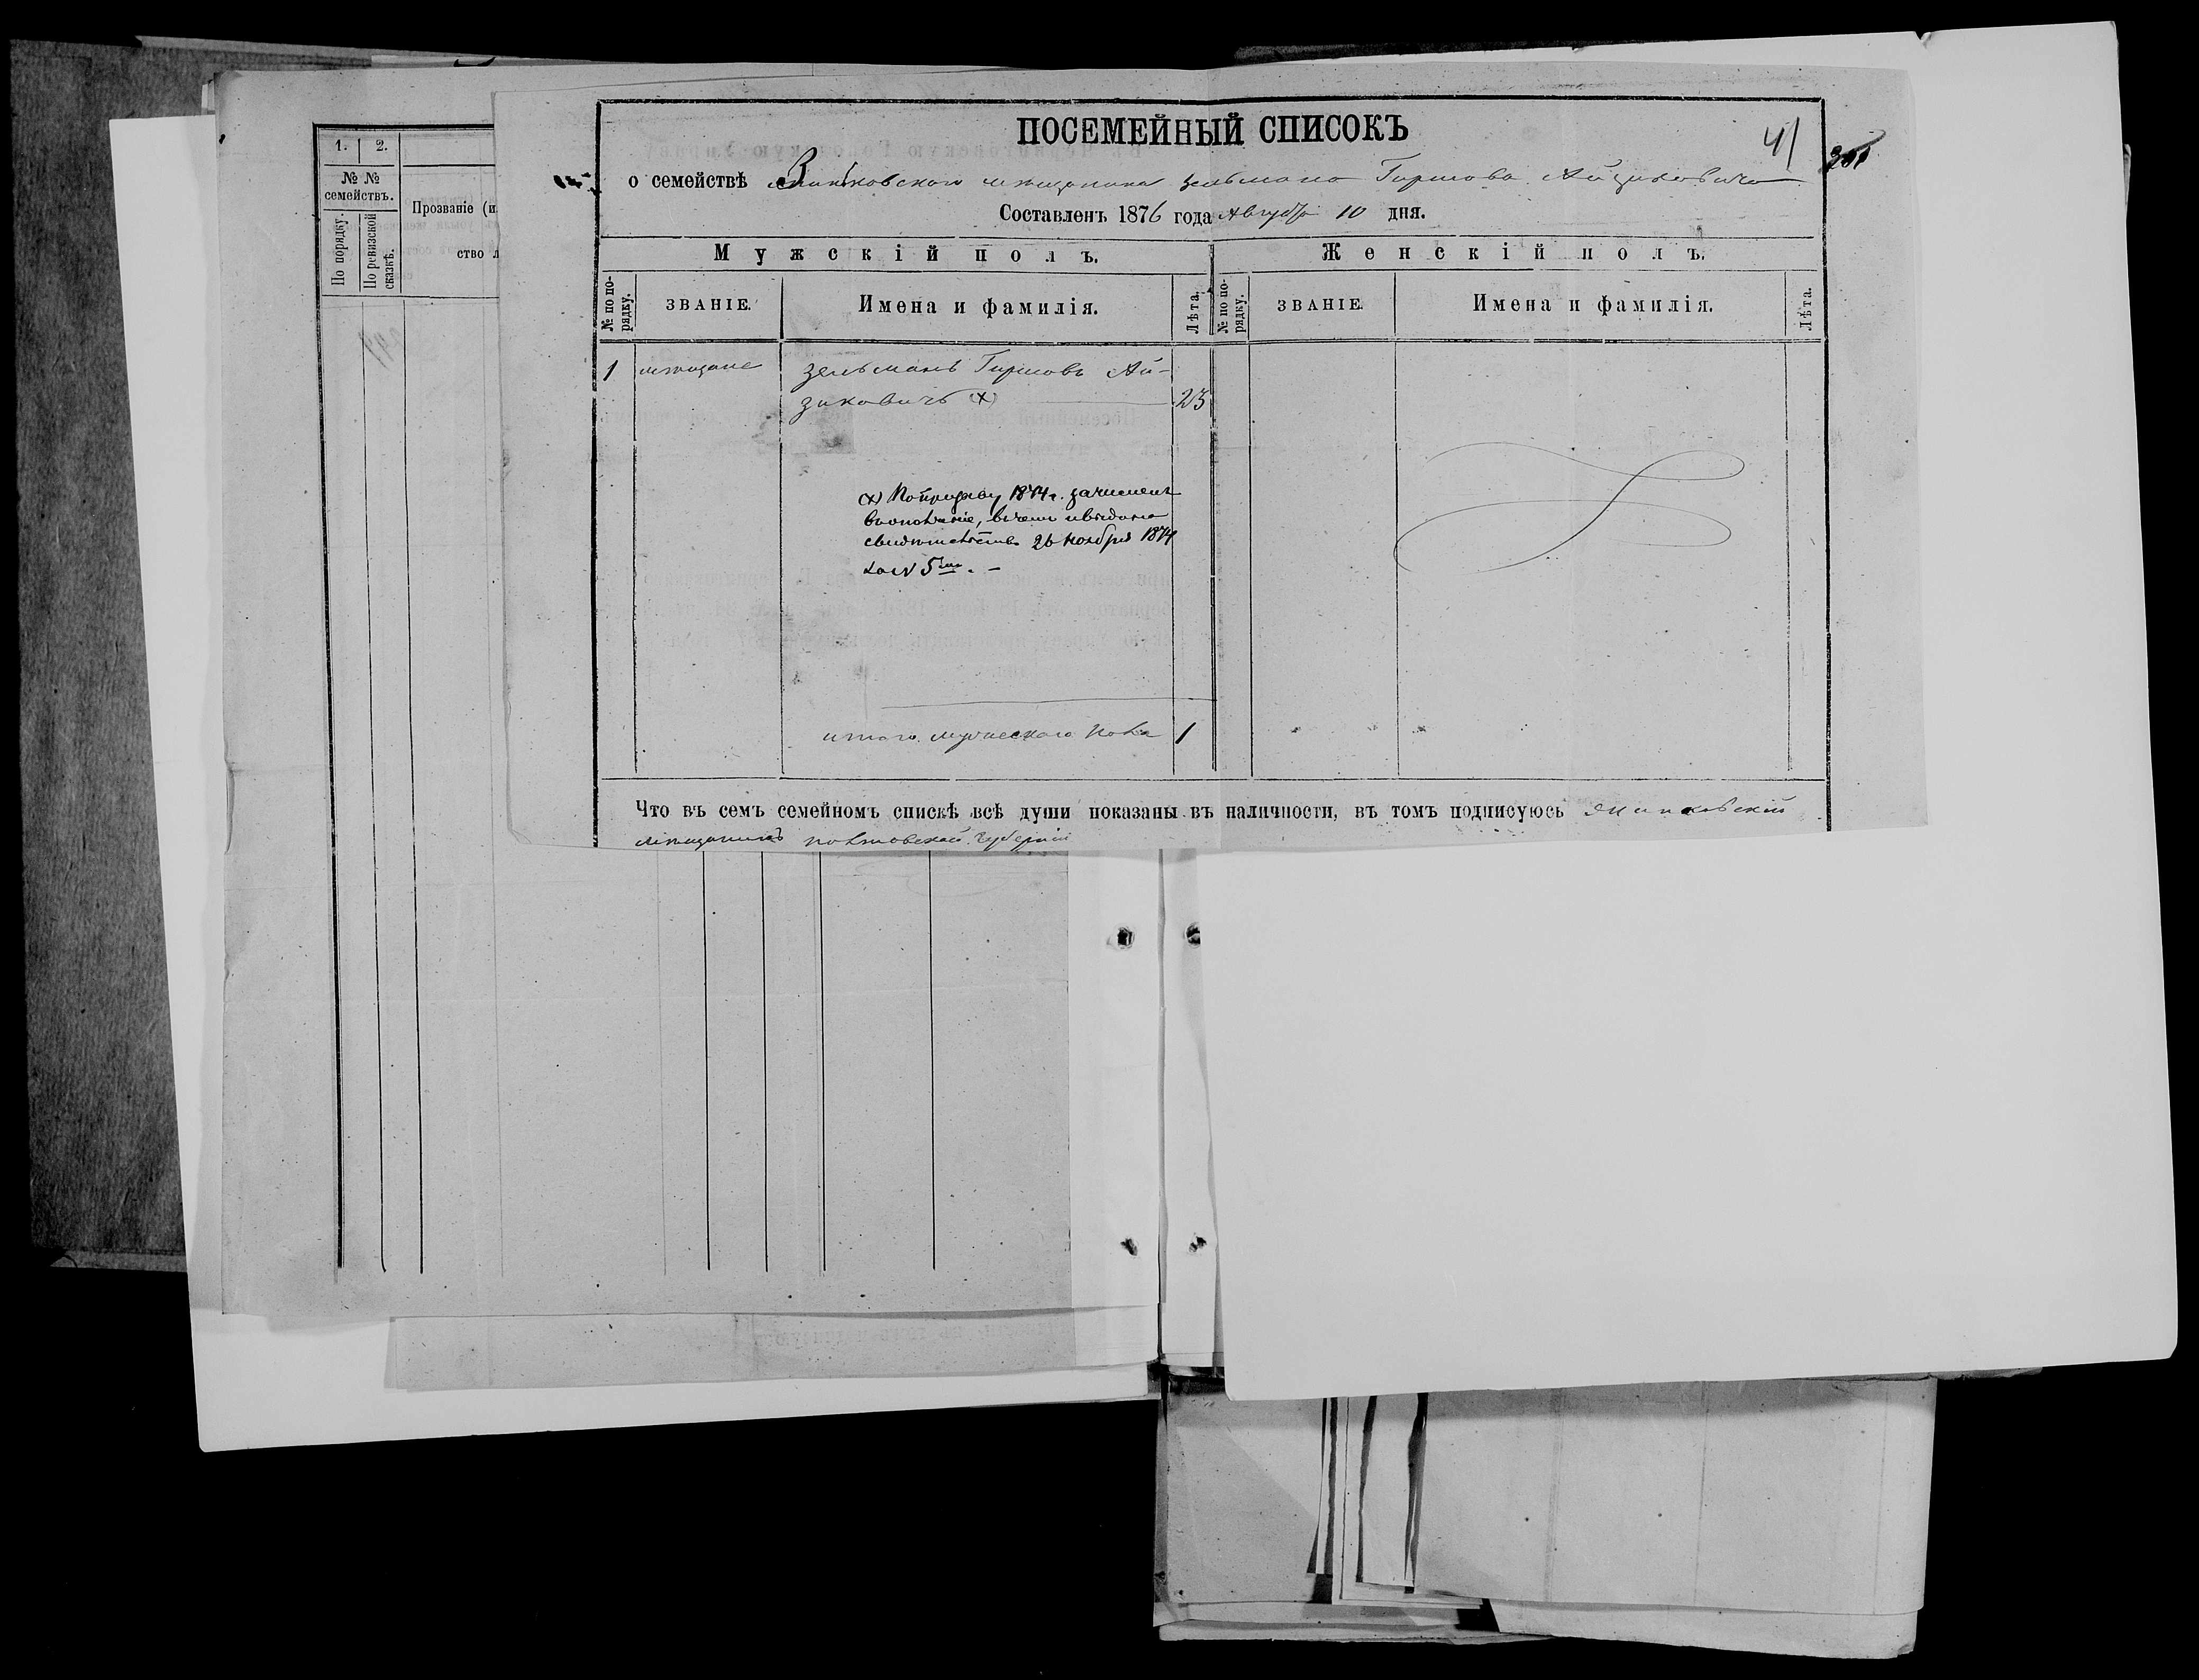 1. 2.
№ №
семействъ.
По порядку.
По ревизской сказкѣ.
Прозваніе (и
ство л
ПОСЕМЕЙНЫЙ СПИСОКЪ
41
о семействѣ мѣщанина Зельмана Гиршова Айзиковича
Составленъ 1876 года Августа 10 дня.
Мужскій полъ.
Женскій полъ.
№ по порядку.
ЗВАНІЕ.
Имена и фамилія.
Лѣта.
№ по порядку.
ЗВАНІЕ.
Имена и фамилія.
Лѣта.
1 мѣщане Зельманъ Гиршовъ Ай-
зиковичъ (х) 23
(х) По призыву 1874 г. зачисленъ
въ ополченіе, въ чемъ
свидѣтельство 26 Ноября 1874
за N 5
итого мужескаго пола 1
Что въ семъ семейномъ спискѣ всѣ души показаны въ наличности, въ томъ подписуюсь
мѣщанинъ Полтовской губерніи